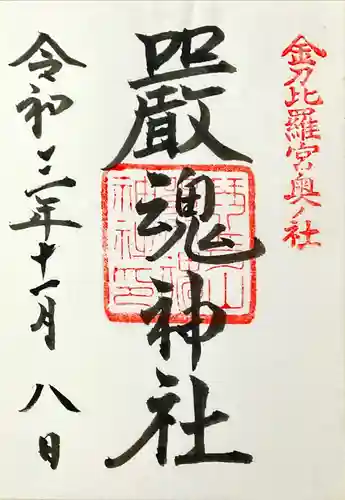 金刀比羅宮奥ノ社
嚴魂神社
令和三年十一月八日